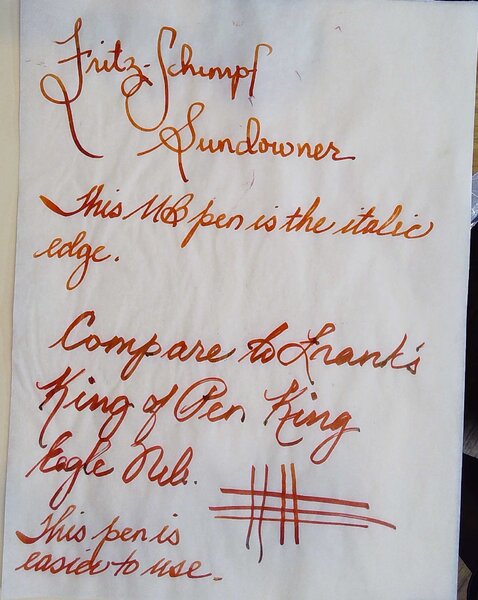 Fritz-Schimpf
Sundowner
This MB pen is the italic
edge.
Compare to Frank's
King of Pen King
Eagle Nib.
This pen is
easier to use.